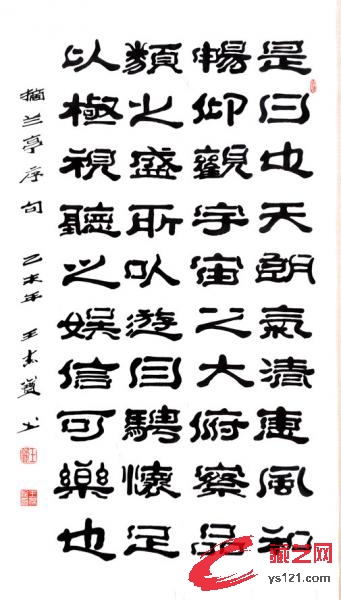 是日也天朗氣清惠風和
暢仰觀宇宙之大俯察品
類之盛所以遊目騁懷足
以極視聽之娛信可樂也
摘兰亭序句 未年 王 书
藏艺网
ys121.com